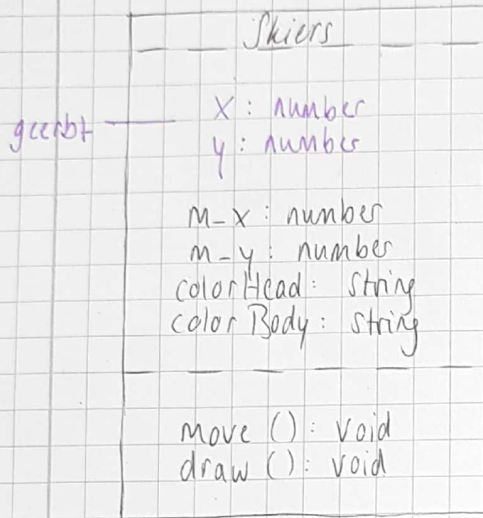 Skiers
x: number
geerbt
y: number
m-x: number
m-y: number
colorHead: String
colorBody: String
move (): void
draw (): void